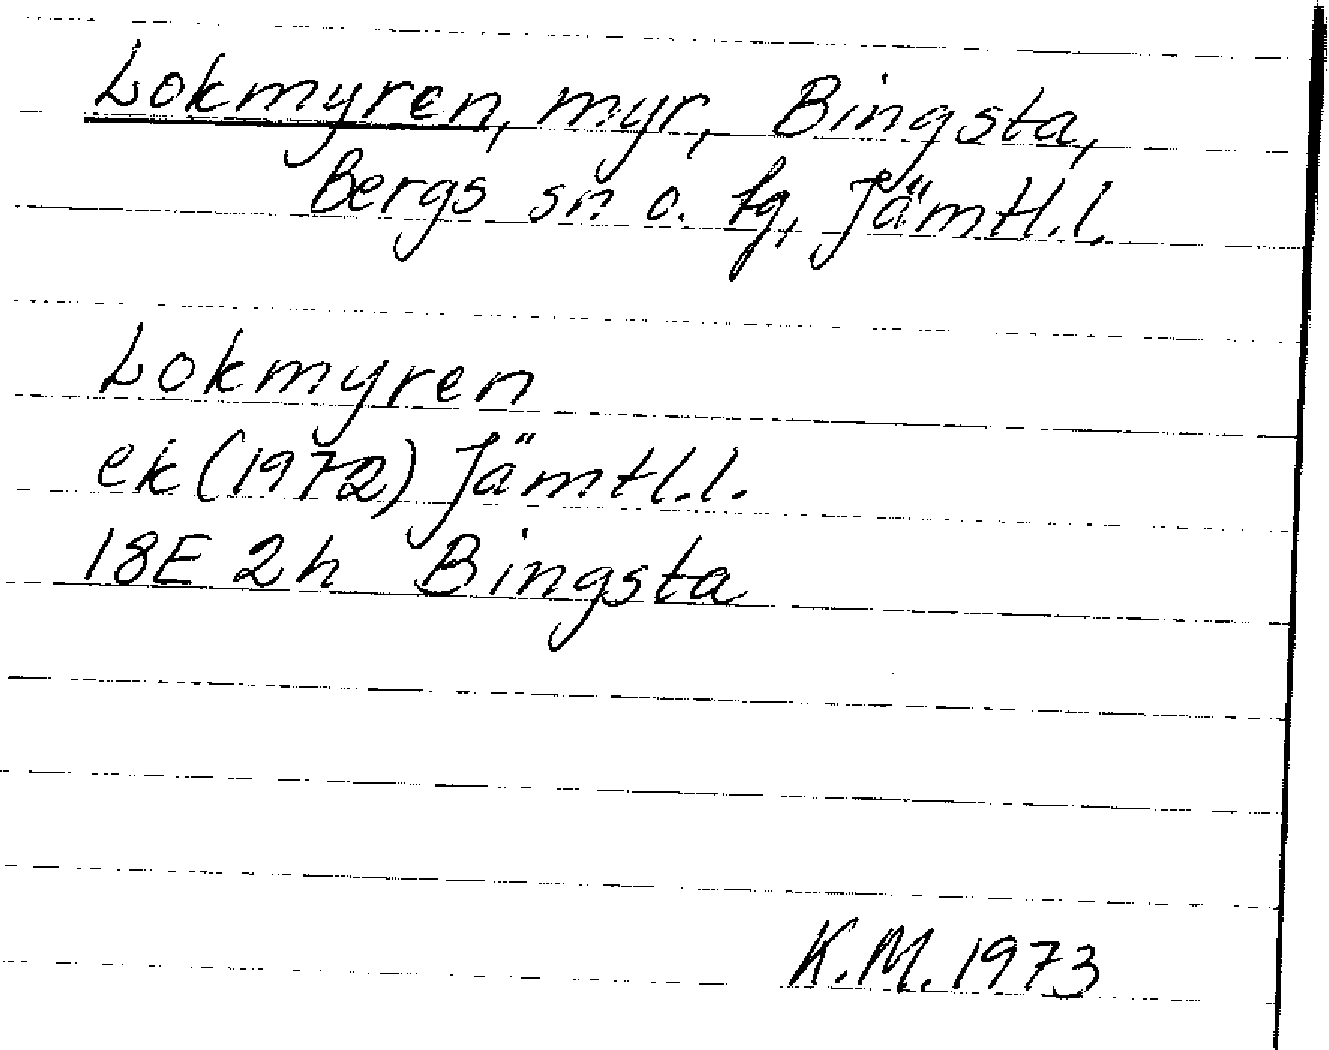 Lokmyren, myr, Bingsta,
Bergs sn o. tg, Jämtl.l.
Lokmyren
ek (1972) Jämtl.l.
18E 2h Bingsta
K.M. 1973